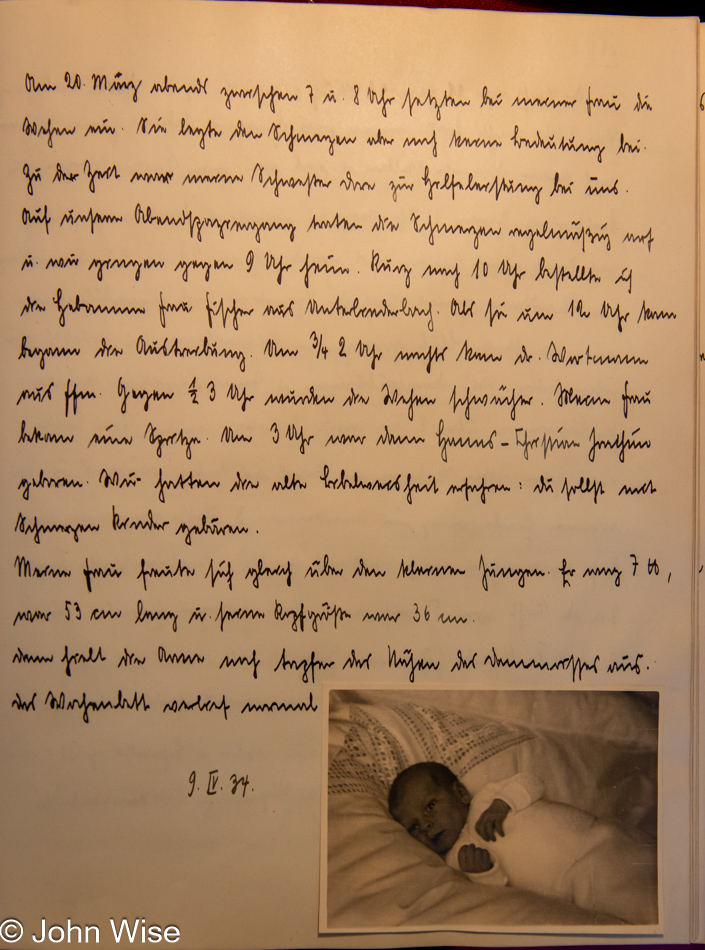 Am 20. März abends zwischen 7 u. 8 Uhr setzten bei meiner Frau die
Wehen ein. Sie legte den Schmerzen aber noch keine Bedeutung bei.
Zu der Zeit war meine Schwester Dore zur Hilfeleistung bei uns.
Auf unserem Abendspaziergang traten die Schmerzen regelmäßig auf
u. wir gingen gegen 9 Uhr heim. Kurz nach 10 Uhr bestellte ich
die Hebamme Frau Fischer aus Unterliederbach. Als sie um 12 Uhr kam
begann die Austreibung. Um 3/4 2 Uhr nachts kam Dr. Wortmann
aus Ffm. Gegen 1/2 3 Uhr wurden die Wehen schwächer. Meine Frau
bekam eine Spritze. Um 3 Uhr war dann Hanns-Christian Joachim
geboren. Wir hatten die alte Bibelweisheit erfahren: du sollst mit
Schmerzen Kinder gebären.
Meine Frau freute sich gleich über den kleinen Jungen. Er wog 7 ℔,
war 53 cm lang u. seine Kopfgröße war 36 cm.
Dann hielt die Arme noch tapfer das Nähen des Dammrisses aus.
Das Wochenbett verlief normal
9. IV. 34.
© John Wise